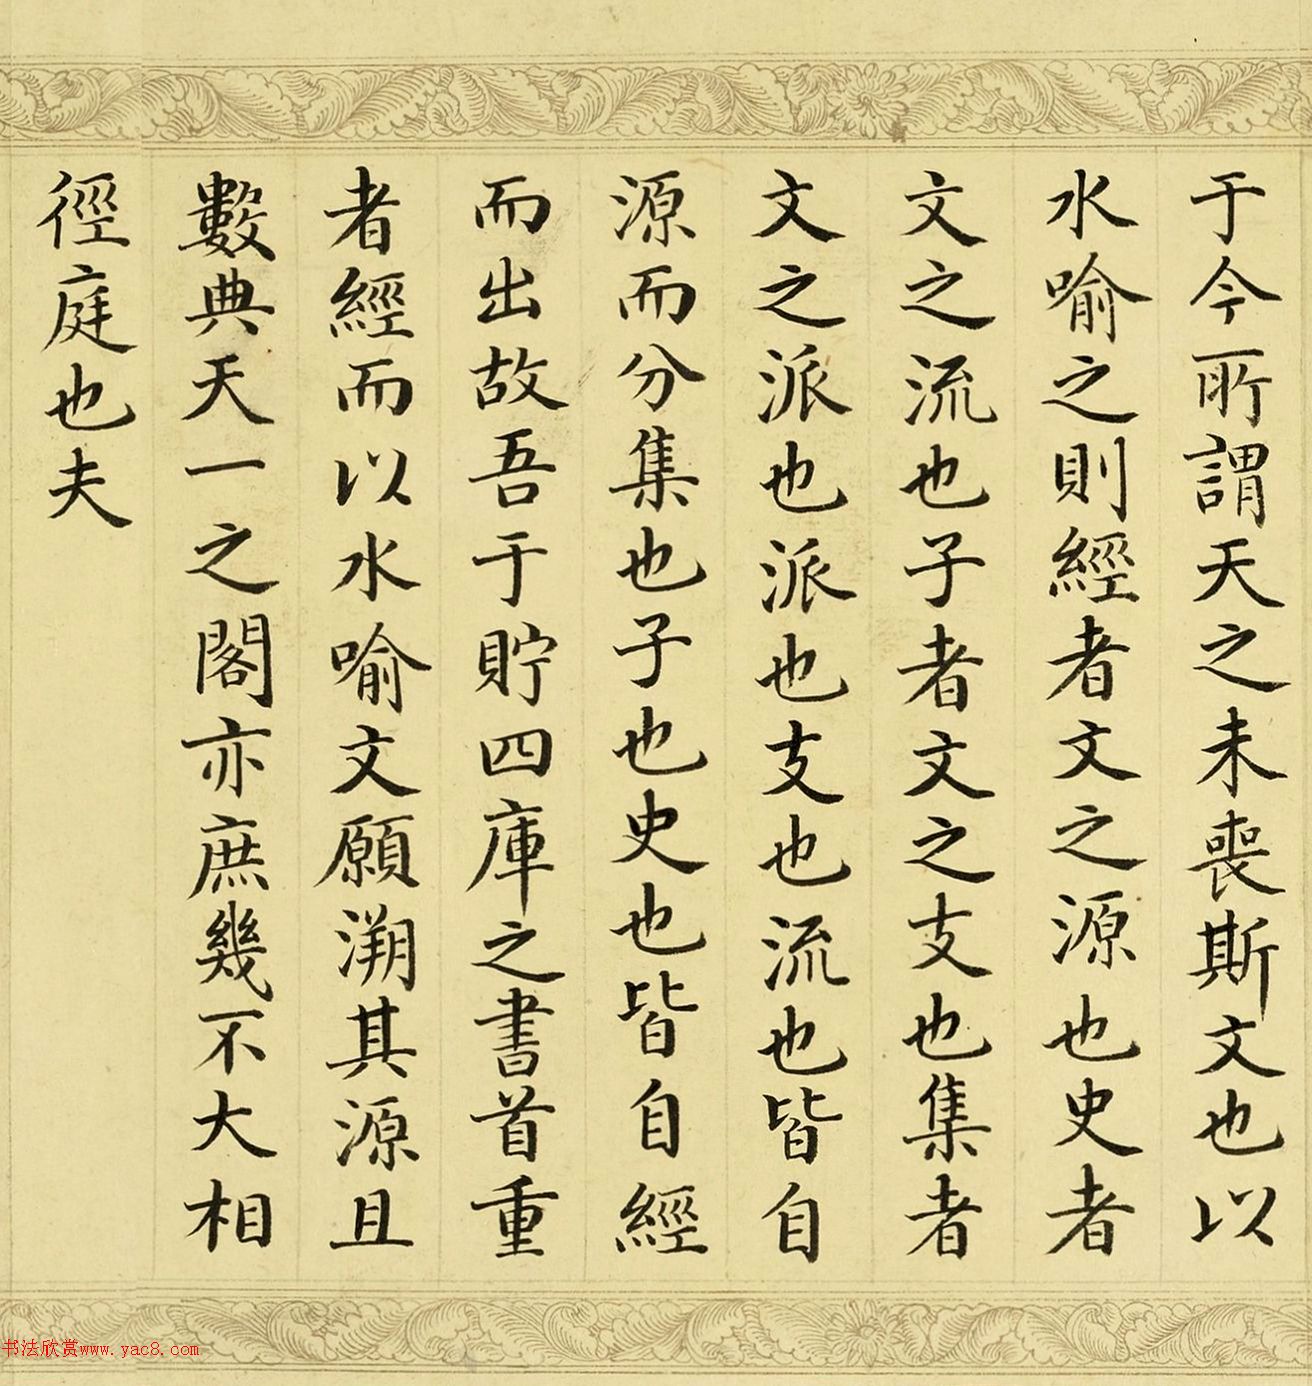 于今所謂天之未喪斯文也以
水喻之則經者文之源也史者
文之流也子者文之支也集者
文之派也派也支也流也皆自
源而分集也子也史也皆自經
而出故吾于貯四庫之書首重
者經而以水喻文願溯其源且
數典天一之閣亦庶幾不大相
徑庭也夫
书法欣赏www.yac8.com